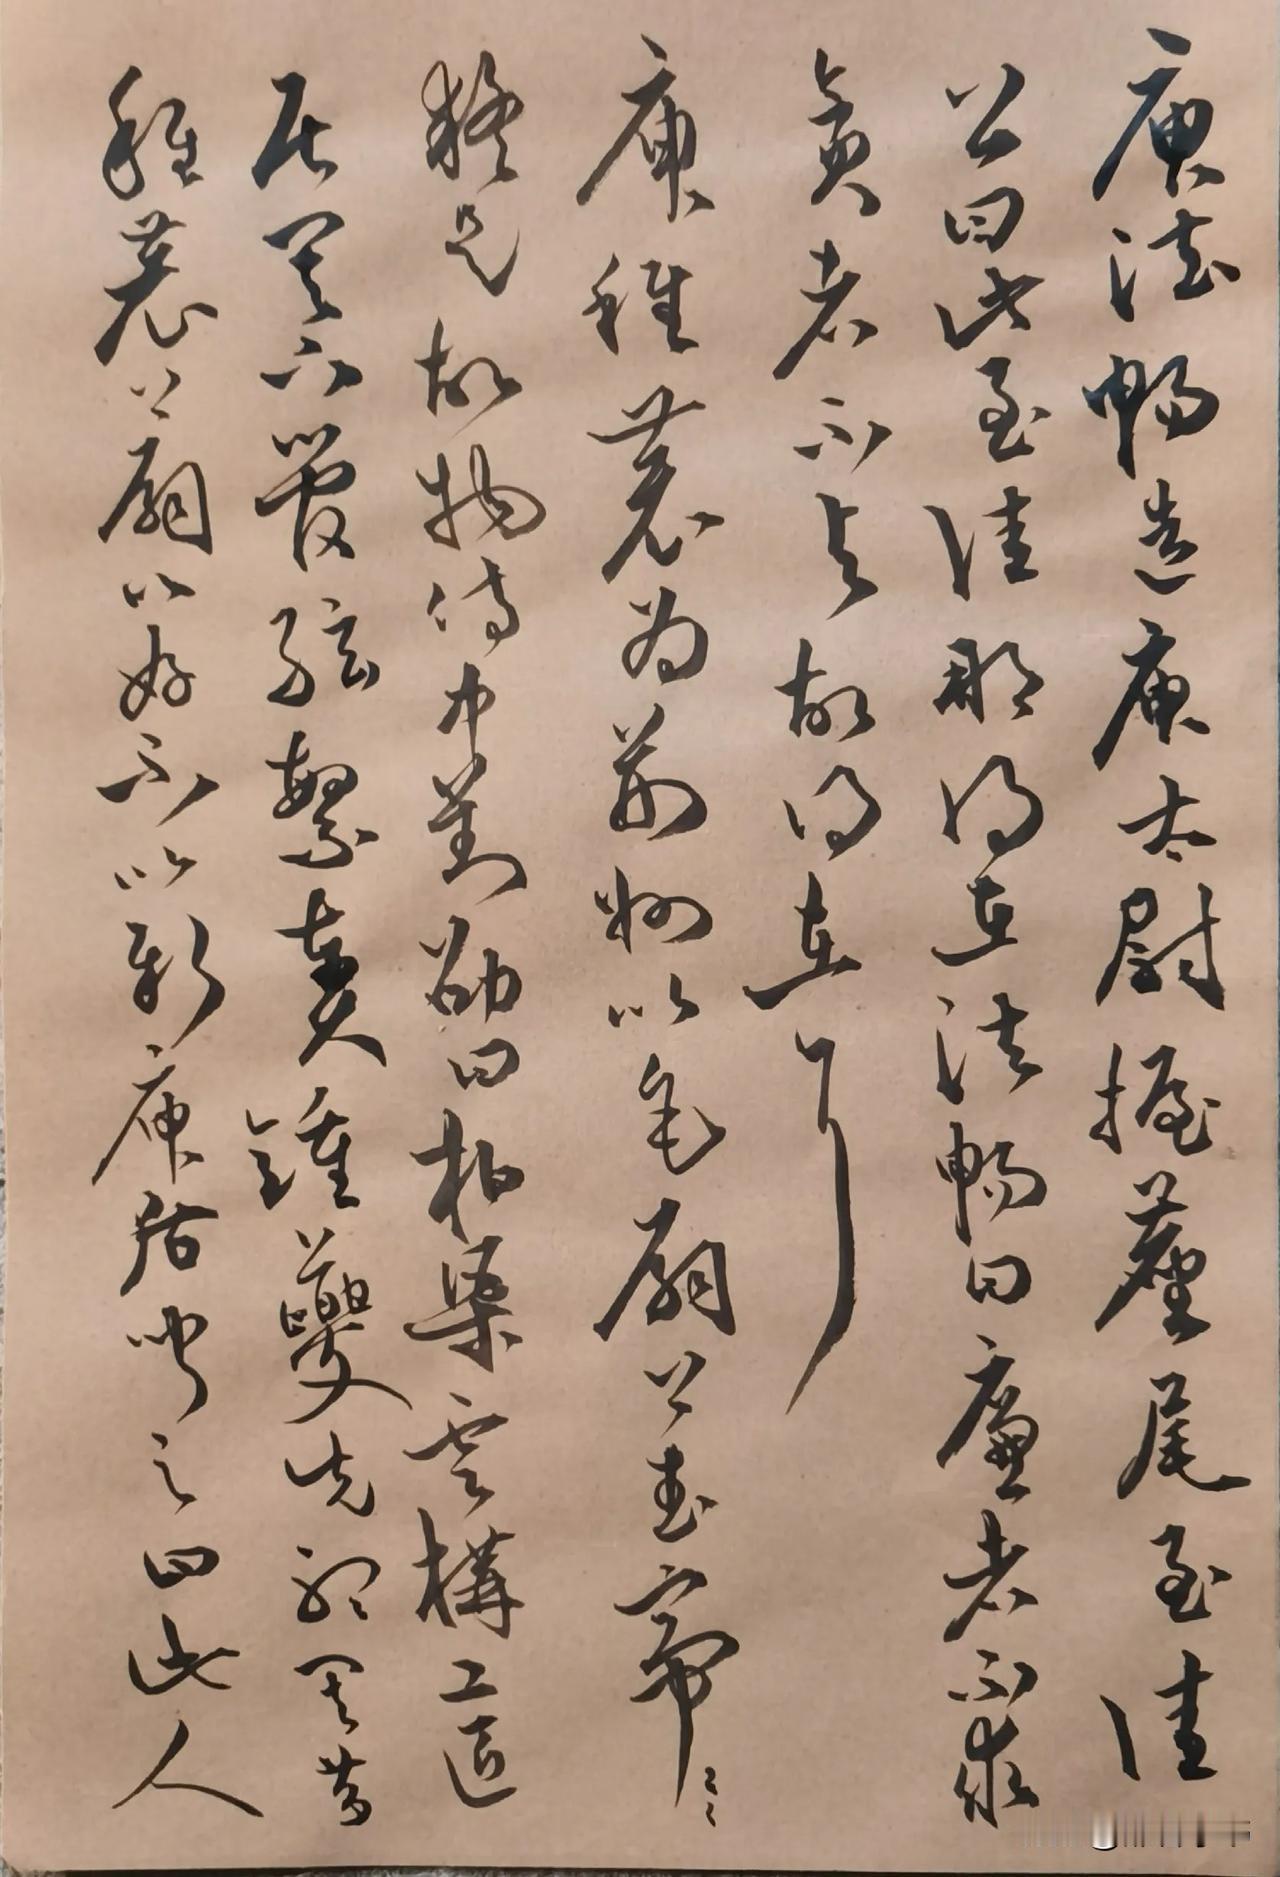 庾法暢造庾太尉握麈尾至佳
公曰此至佳那得在法暢曰廉者不求
貪者不與故得在耳
庾稚恭為荊州以毛扇上武帝〻〻
疑是故物侍中劉劭曰柏梁雲構工匠
居其下管弦繁奏鍾夔先聽其音
稚恭上扇以好不以新庾後聞之曰此人